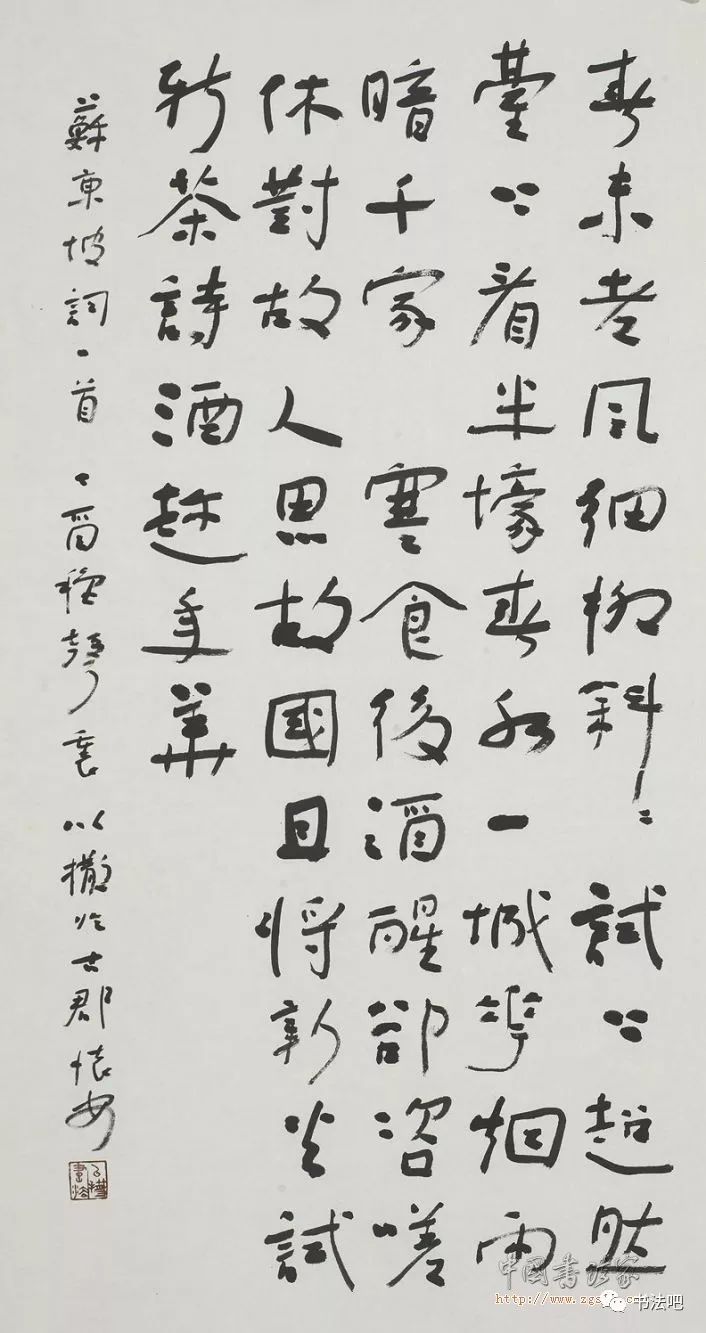 春未老風細柳斜〻試〻超然
臺〻看半壕春水一城花烟雨
暗千家 寒食後酒醒卻咨嗟
休對故人思故國且将新火試
新茶詩酒趁年華
蘇東坡詞一首 酉穐聲裏 以撒於古郡懷安
中国书法家
http://www.zgs
书法吧